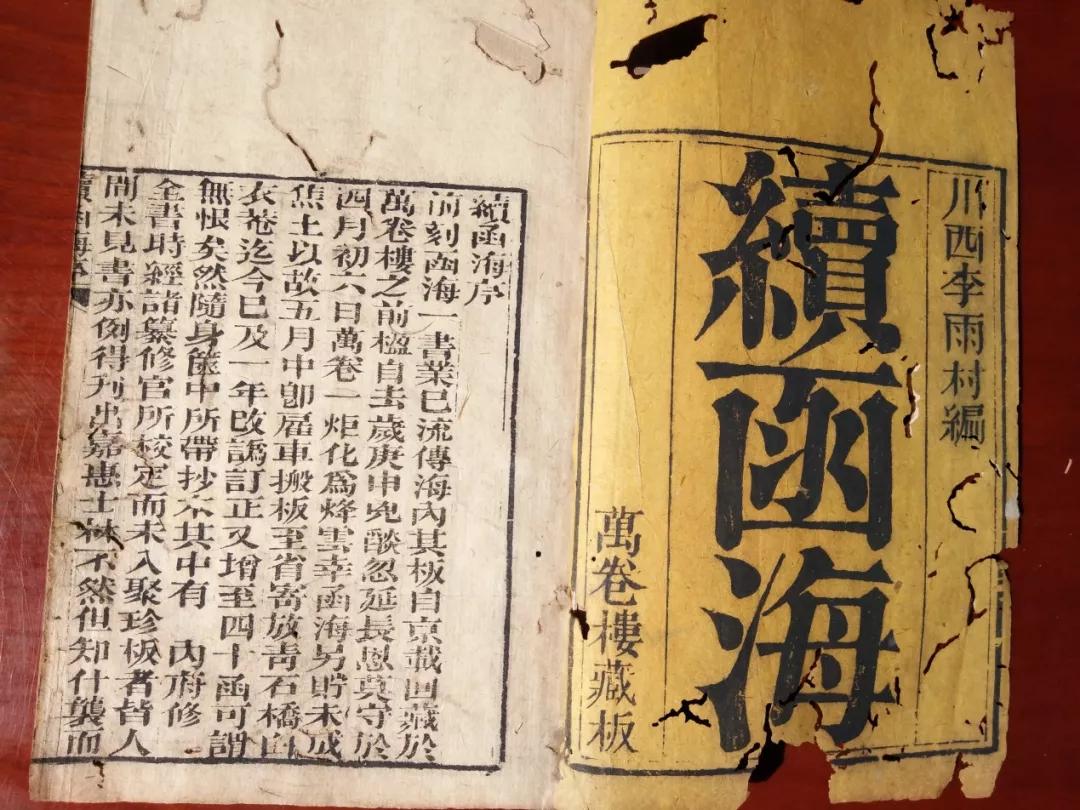 川西李雨村編
續函海
萬卷樓藏板
續函海序
前刻函海一書業已流傳海內其板自京載回藏於
萬卷樓之前楹自去歲庚申兇燄忽延長恩莫守於
四月初六日萬卷一炬化爲烽雲幸函海另貯未成
焦土以故五月中卽雇車搬板至省寄放靑石橋白
衣菴迄今已及一年改譌訂正又增至四十函可謂
無恨矣然隨身篋中所帶抄本其中有 內府修
全書時經諸纂修官所校定而未入聚珍板者皆人
間未見書亦例得刋出嘉惠士林不然但知什襲而
續函海序